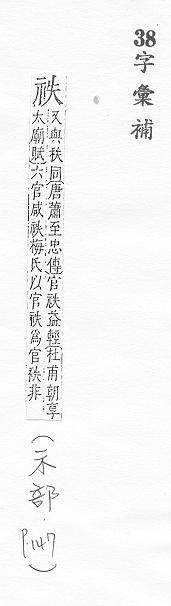 38字彙補
祑
又與秩同唐蕭至忠傳官祑益輕杜甫朝享
太廟賦六官咸祑梅氏以官祑爲官秩非
(示部.P.147)